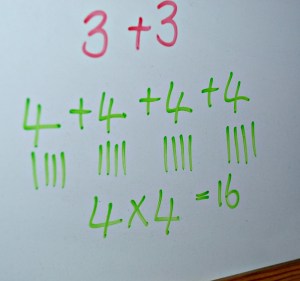 3 + 3
4 + 4 + 4 + 4
|||| |||| |||| ||||
4 x 4 = 16